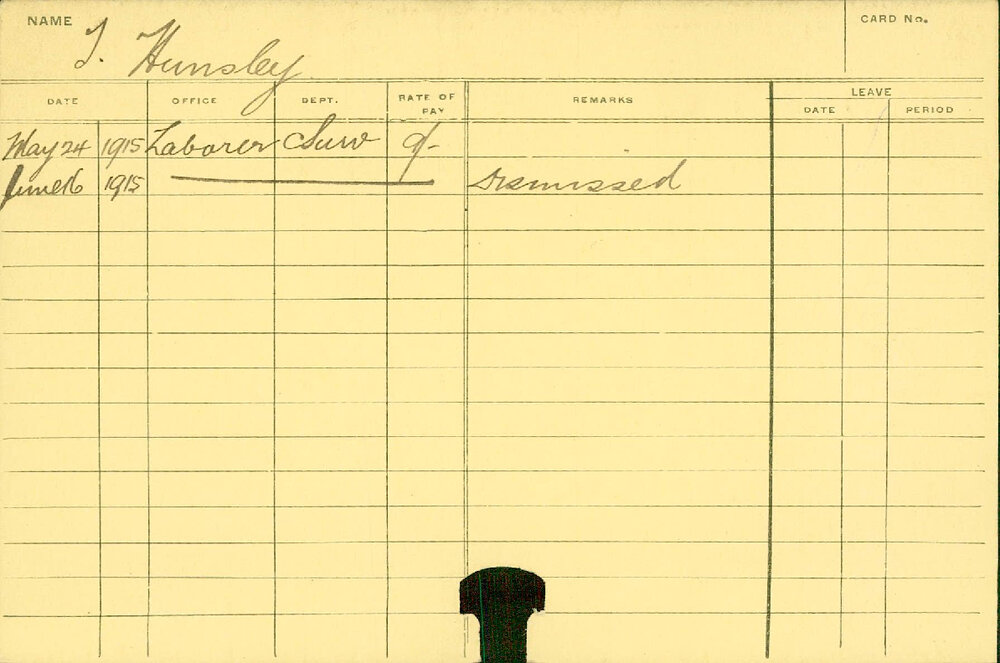 NAME J. Hunsley CARD No.
DATE OFFICE DEPT. RATE OF PAY REMARKS LEAVE
DATE PERIOD
May 24 1915 Laborer Surv 9/-
June 16 1915 Dismissed